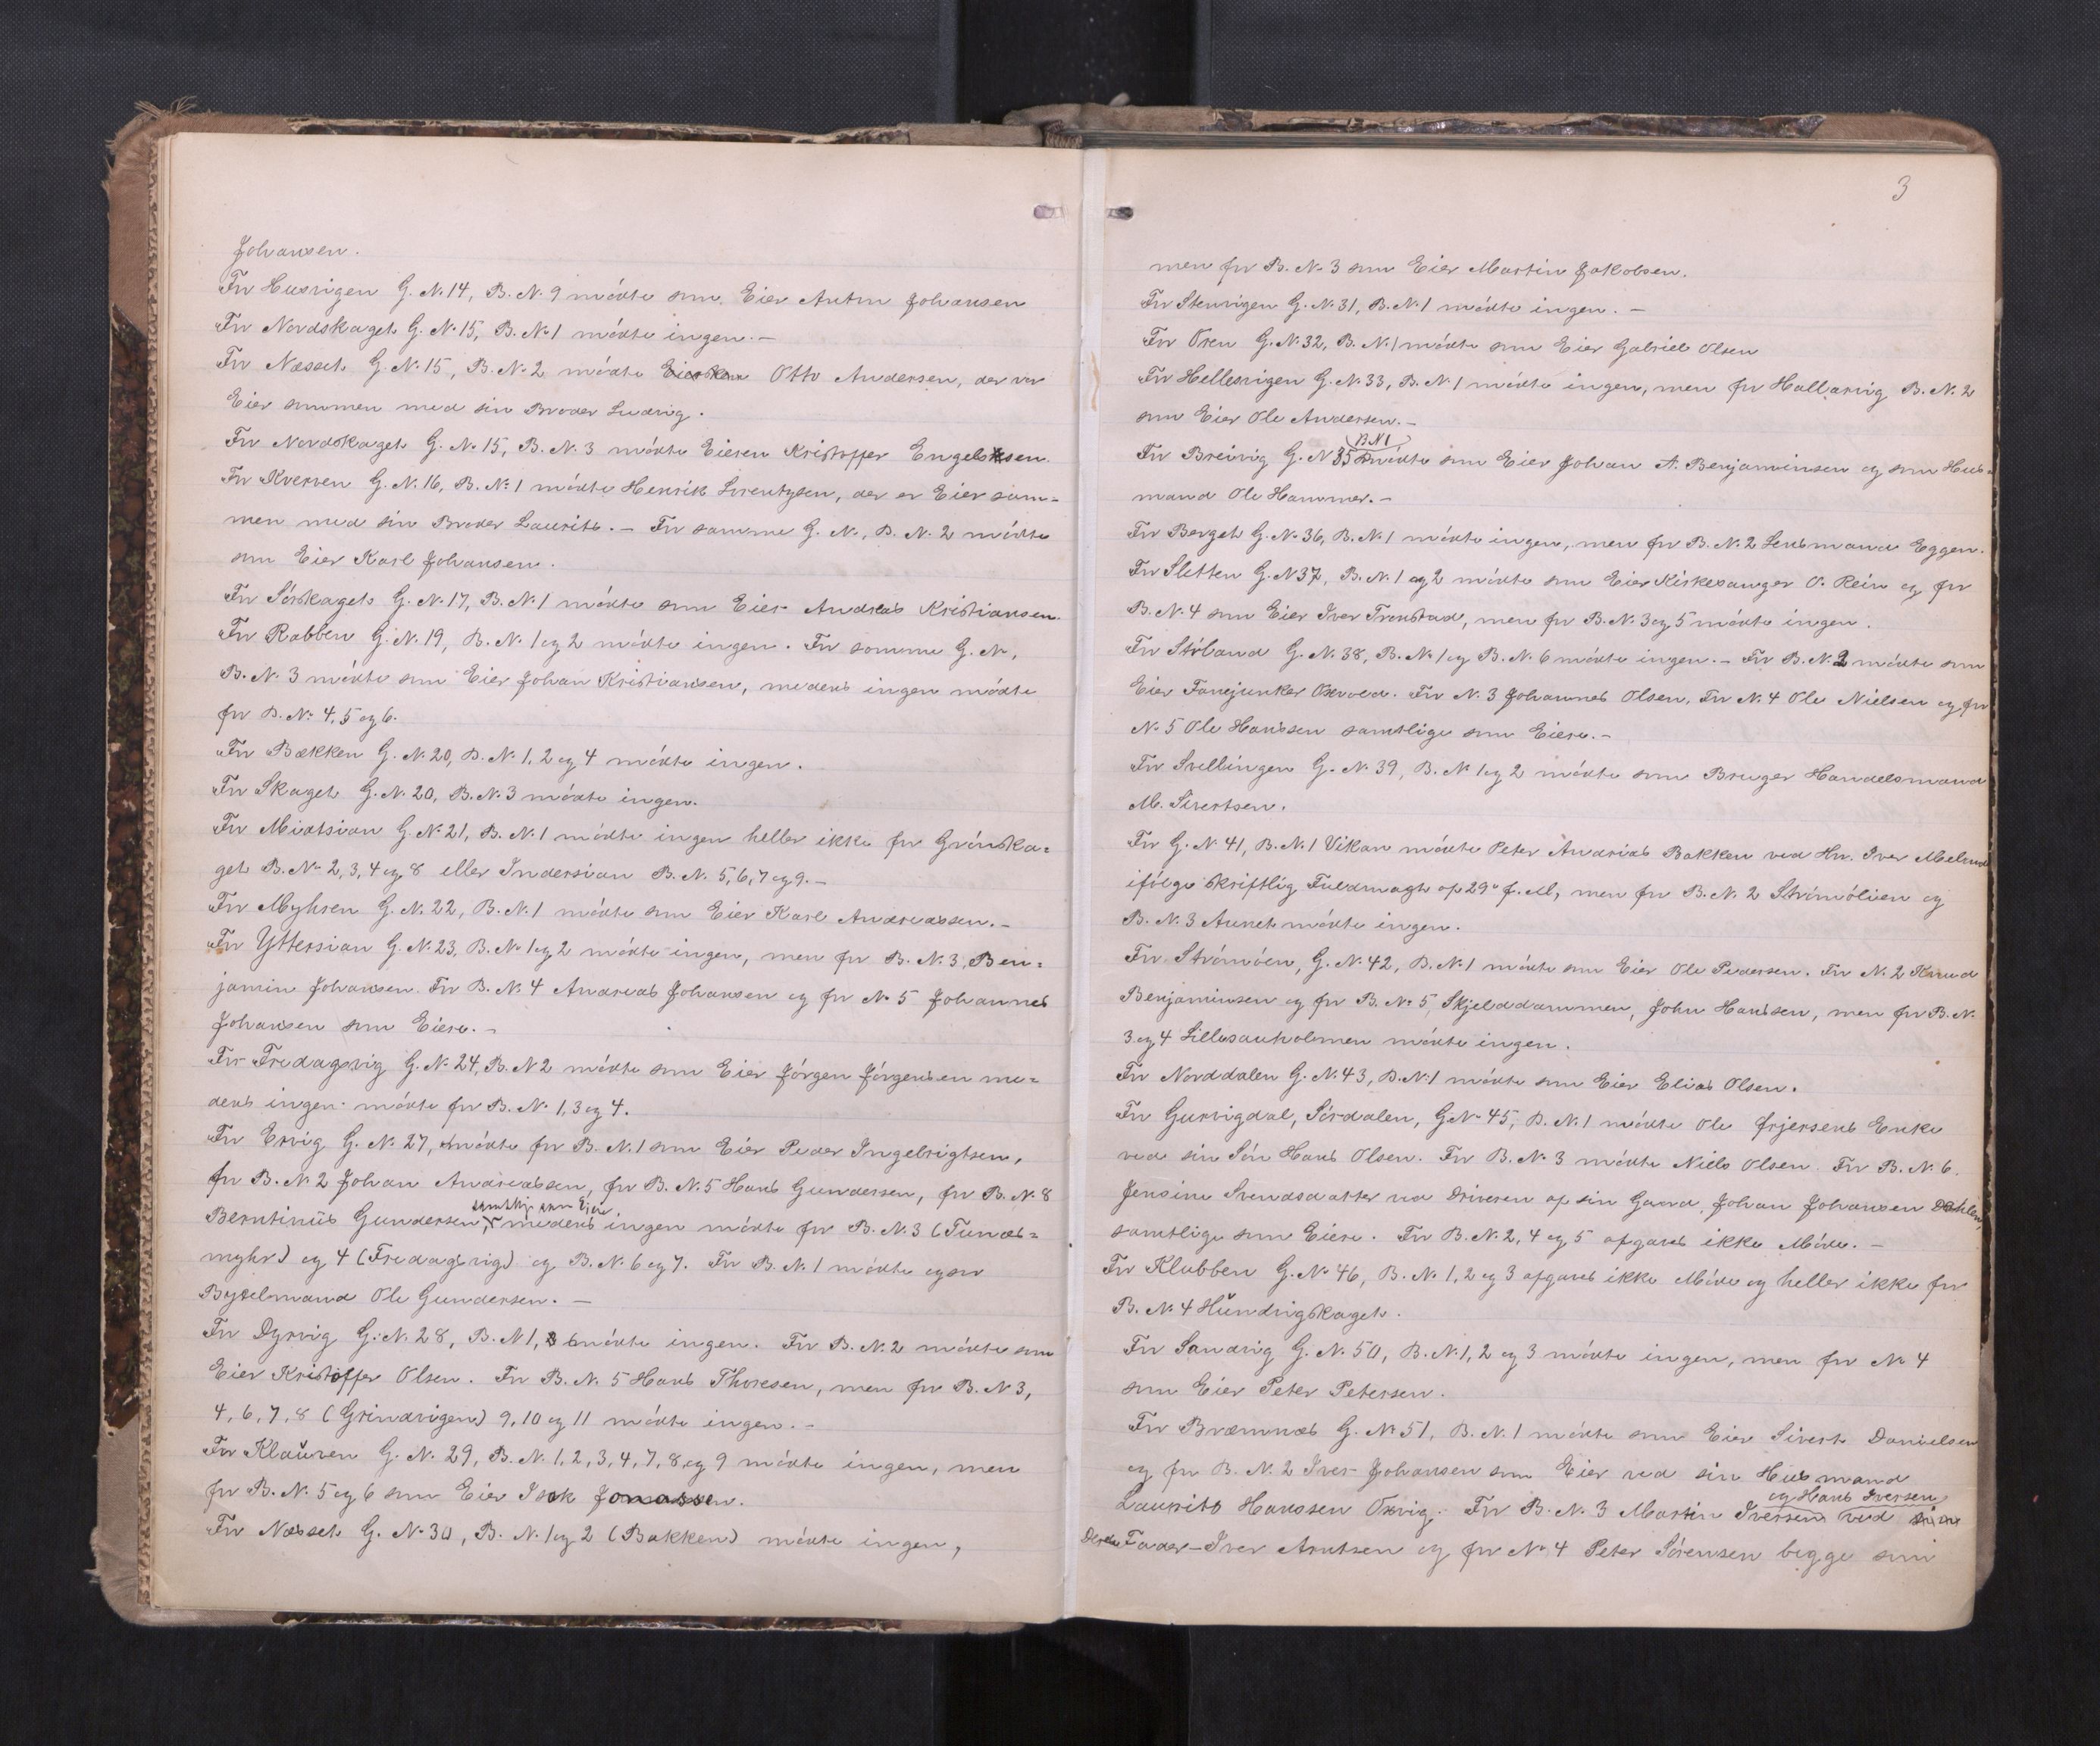 Johansen.
For Husvigen G. N. 14, B. N. 9 mödte som Eier Anton Johansen
For Nordskaget G. N. 15, B. N. 1 mödte ingen. –
For Næsset G. N. 15, B. N. 2 mödte Otto Andersen, der var
Eier sammen med sin Broder Ludvig.
For Nordskaget G. N. 15, B. N. 3 mödte Eieren Kristoffer Engelsen.
For Kverven G. N. 16, B. N. 1 mödte Henrik Lorentzen, der er Eier sam=
men med sin Broder Laurits. – For samme G. N., B. N. 2 mödte
som Eier Karl Johansen.
For Sörskaget G. N. 17, B. N. 1 mödte som Eier Andreas Kristiansen.
For Rabben G. N. 19, B. N. 1 og 2 mödte ingen. For samme G. N,
B. N. 3 mödte som Eier Johan Kristiansen, medens ingen mödte
for B. N. 4, 5 og 6.
For Bækken G. N. 20, B. N. 1, 2 og 4 mödte ingen.
For Skaget G. N. 20, B. N. 3 mödte ingen.
For Midtsian G. N. 21, B. N. 1 mödte ingen heller ikke for Grönska=
get B. N. 2, 3, 4 og 8 eller Indersian B. N. 5, 6, 7 og 9. –
For Myhren G. N. 22, B. N. 1 mödte som Eier Karl Andreassen. –
For Yttersian G. N. 23, B. N. 1 og 2 mödte ingen, men for B. N. 3, Ben=
jamin Johansen. For B. N. 4 Andreas Johansen og for N. 5 Johannes
Johansen som Eiere. –
For Fredagsvig G. N. 24, B. N 2 mödte som Eier Jörgen Jörgensen me=
dens ingen mödte for B. N. 1, 3 og 4.
For Ervig G. N. 27, mödte for B. N. 1 som Eier Peder Ingebrigtsen,
for B. N. 2 Johan Andreassen, for B. N. 5 Hans Gundersen, for B. N. 8
samtlige som Eiere.
Berntinus Gundersen, medens ingen mödte for B. N. 3 (Tunæs=
myhr) og 4 (Fredagsvig) og B. N. 6 og 7. For B. N. 1 mödte ogsaa
Bygselmand Ole Gundersen. –
For Dyrvig G. N. 28, B. N 1, mödte ingen. For B. N. 2 mödte som
Eier Kristoffer Olsen. For B. N. 5 Hans Thoresen, men for B. N 3,
4, 6, 7, 8 (Grindvigen) 9, 10 og 11 mödte ingen. –
For Klauren G. N. 29, B. N. 1, 2, 3, 4, 7, 8, og 9 mödte ingen, men
for B. N. 5 og 6 som Eier Isak Jonassen.
For Næsset G. N. 30, B. N. 1 og 2 (Bakken) mödte ingen,
3
men for B. N. 3 som Eier Martin Jakobsen.
For Stenvigen G. N. 31, B. N. 1 mödte ingen. –
For Osen G. N. 32, B. N. 1 mödte som Eier Gabriel Olsen
For Hellesvigen G. N. 33, B. N. 1 mödte ingen, men for Hallarvig B. N. 2
som Eier Ole Andersen. –
B N 1
For Breivig G. N 35 mödte som Eier Johan A. Benjaminsen og som Hus=
mand Ole Hammer. –
For Berget G. N. 36, B. N. 1 mödte ingen, men for B. N. 2 Lensmand Eggen.
For Sletten G. N 37, B. N. 1 og 2 mödte som Eier Kirkesanger O. Rein og for
B. N. 4 som Eier Iver Tronstad, men for B. N. 3 og 5 mödte ingen.
For Stöland G. N. 38, B. N. 1 og B. N. 6 mödte ingen. – For B. N. 2 mödte som
Eier Fanejunker Oxvold. For N. 3 Johannes Olsen, For N. 4 Ole Nielsen og for
N. 5 Ole Hanssen samtlige som Eiere. –
For Svellingen G. N. 39, B. N 1 og 2 mödte som Bruger Handelsmand
M. Sivertsen.
For G. N. 41, B. N. 1 Vikan mödte Peter Andreas Bakken ved Hr. Iver
ifölge skriftlig Fuldmagt af 29. f. M, men for B. N. 2 Strömölien og
B. N. 3 Aunet mödte ingen.
For Strömöen, G. N. 42, B. N. 1 mödte som Eier Ole Pedersen. For N. 2 Knud
Benjaminsen og for B. N. 5, Skjelddammen, John Hanssen, men for B. N.
3 og 4 Lillesauholmen mödte ingen.
For Norddalen G. N. 43, B. N. 1 mödte som Eier Elias Olsen.
For Gurvigdal, Sördalen, G. N. 45, B. N. 1 mödte Ole Enke
ved sin Sön Hans Olsen. For B. N. 3 mödte Niels Olsen. For B. N. 6.
Jensine Svendsdatter ved Driveren af sin Gaard, Johan Johansen Dahlen,
samtlige som Eiere. For B. N. 2, 4 og 5 afgaves ikke Möde. –
For Klubben G. N. 46, B. N. 1, 2 og 3 afgaves ikke Möde og heller ikke for
B. N. 4 Hundvigskaget.
For Sandvig G. N. 50, B. N. 1, 2 og 3 mödte ingen, men for N. 4
som Eier Peter Petersen.
For Bræmnæs G. N. 51, B. N. 1 mödte som Eier Sivert Danielsen
og for B. N. 2 Iver Johansen som Eier ved sin Husmand
og Hans Iversen
Laurits Hanssen Oxvig. For B. N. 3 Martin Iversen ved
Deres Fader – Iver Arntsen og for N. 4 Peter Sörensen begge som